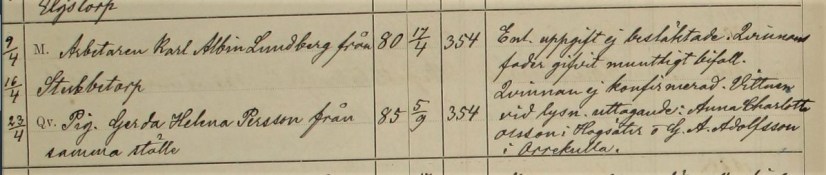 Elystorp
9/4 M. Arbetaren Karl Albin Lundberg från 80 17/4 354 Enl. uppgift ej besläktade. Qvinnans
fader gifvit muntligt bifall.
16/4 Stubbetorp
Qvinnan ej konfirmerad. Vittnen
23/4 Qv. Pig. Gerda Helena Persson från 85 5/9 354 vid lysn. uttagande: Anna Charlotta
samma ställe
i Högsäter o G. A. Adolfsson
i Orrekulla.